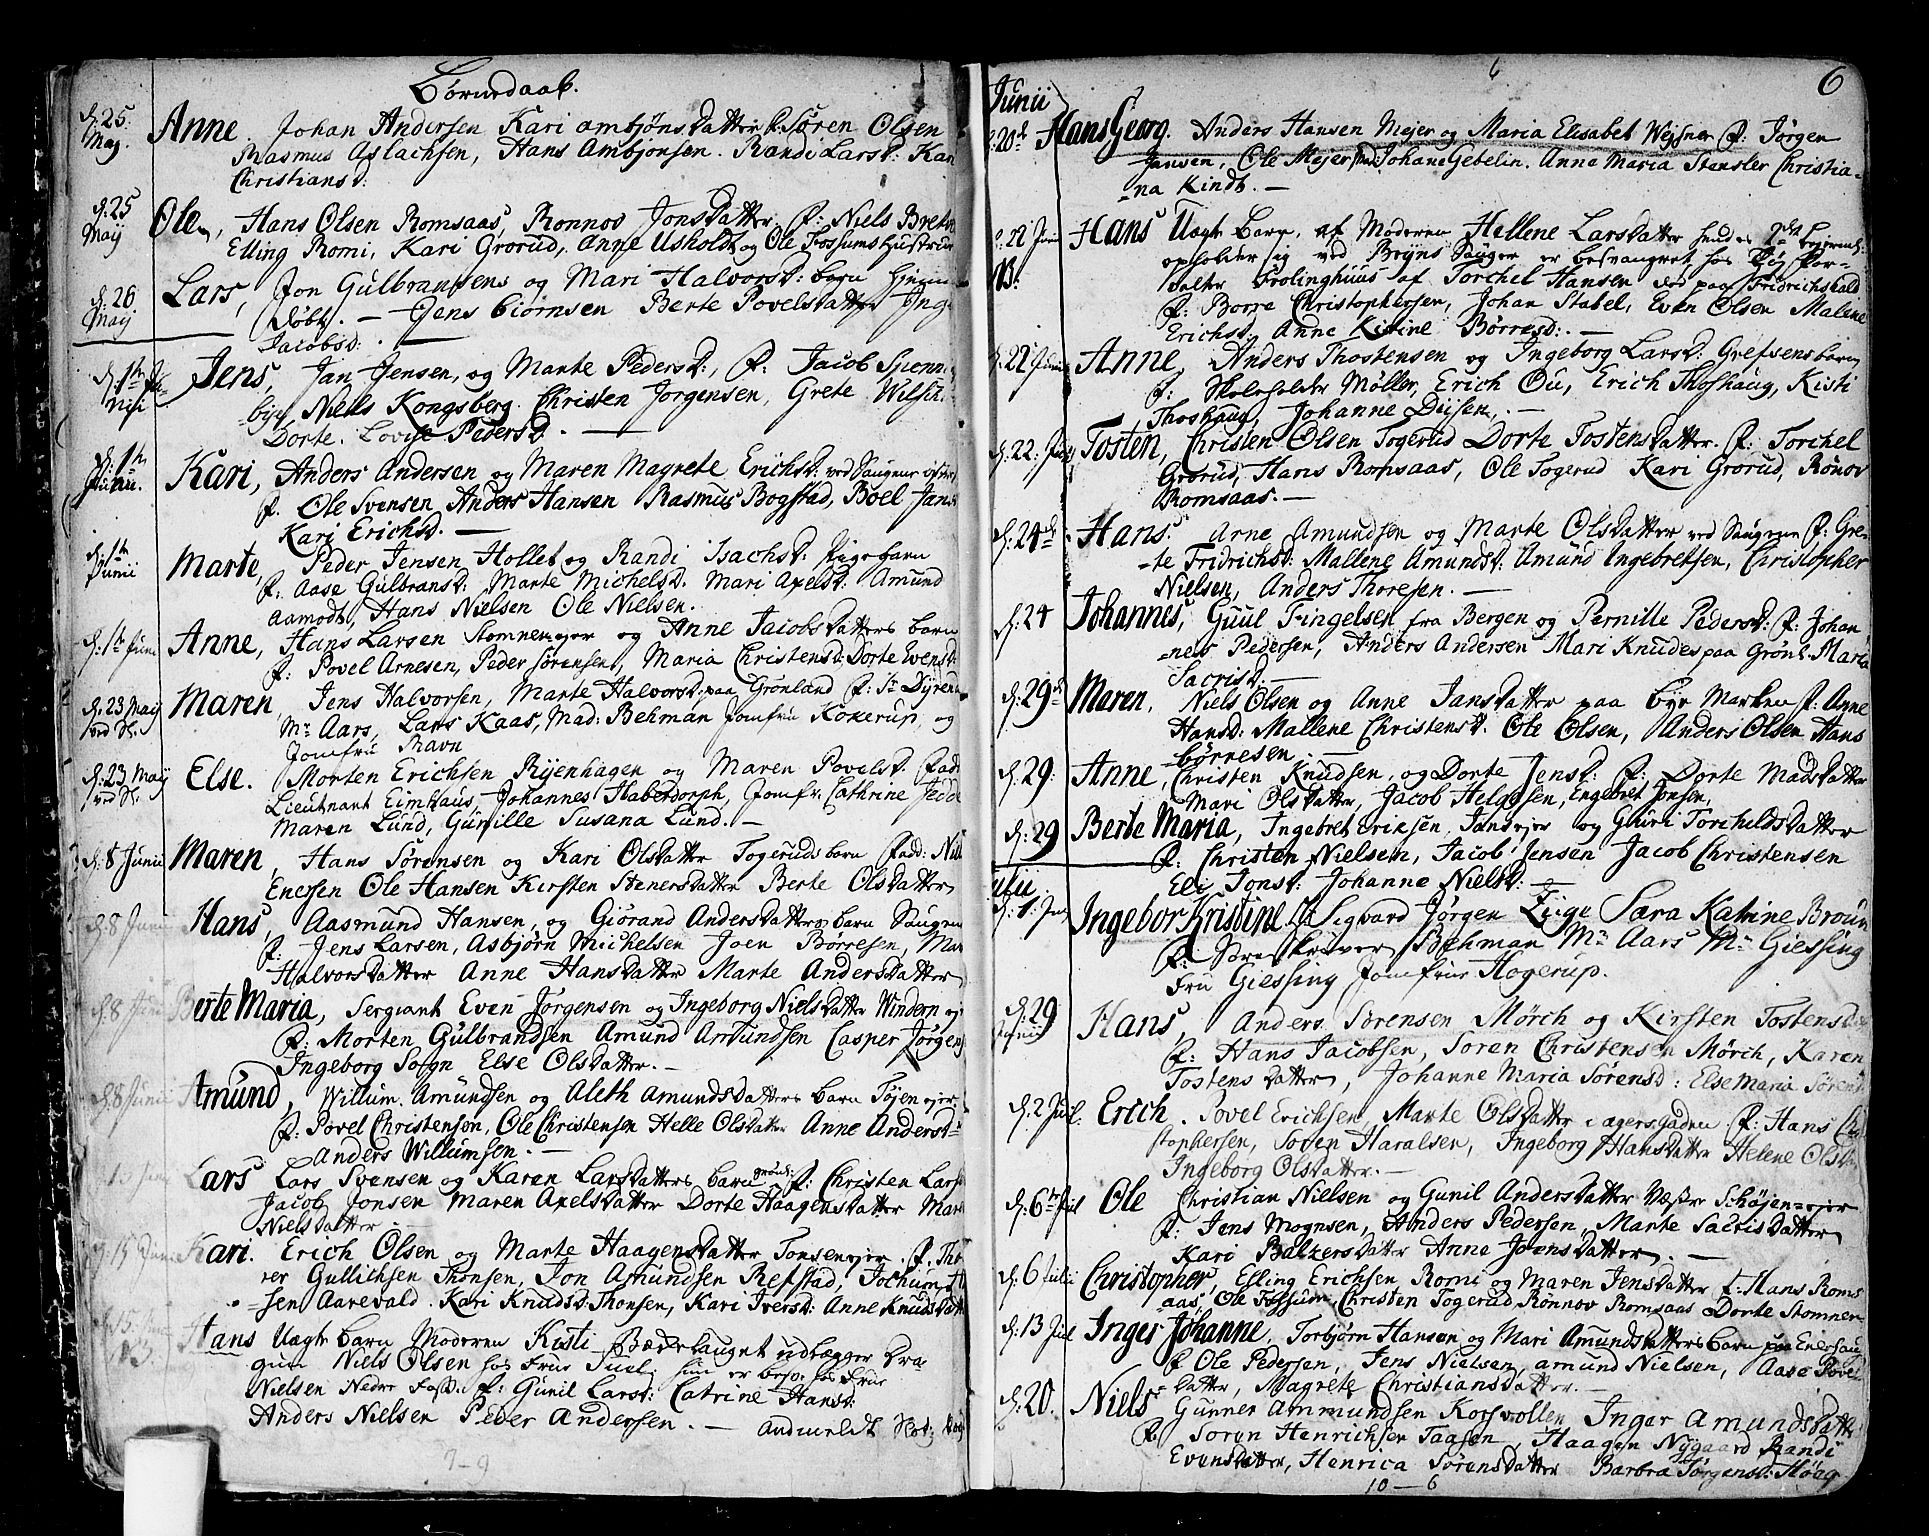 Børnedaab.
d. 25. Maj. Anne. Johan Andersen Kari ambjønsdatter F. Søren Olsen
Rasmus Aslachsen, Hans Ambjonsen. Randi Larsd: Kari
Christiansd:
d. 25 Maij Ole, Hans Olsen Romsaas, Ronnov Jonsdatter F: Niels
Elling Romi, Kari Grorud, Anne Usholdt og Ole Fossums Hustrue
d. 26 Maij Lars, Jon Gulbransens og Mari Halvorsd: barn hjemme
døbt. — Gens Giørnsen Berte Povelsdatter Inge
Jacobsd: . —
d. 1te Junii Jens, Jan Jensen, og Marte Pedersd:, F: Jacob
Niels Kongsberg. Christen Jorgensen, Grete
Dorte. Lovise Pedersd. —
d. 1te Junii. Kari, Anders Andersen og Maren Magrete Erichsd: ved Saugene
F. Ole Svensen Anders Hansen Rasmus Bogstad, Boel
Kari Erichsd. —
d. 1te Junii Marte, Peder Jensen Hollet og Randi Isachsd: barn
F: Aase Gulbransd: Marte Michelsd. Mari Axelsd: Amund
Aamodt, Hans Nielsen Ole Nielsen.
d. 1te Junii Anne, Hans Larsen og Anne Jacobsdatters barn
F: Povel Arnesen, Peder Sørensen, Maria Christensd: Dorte Evensd:
d. 23 Maij Maren, Jens Halvorsen, Marte Halvorsd: paa Grønland F:
Mr Aars, Lars Kaas, Mad: Behman Jomfru Kokerup, og
Jomfru Ravn
d. 23 Maij Else. Morten Erichsen Ryenhagen og Maren Povelsd. Fad:
Lieutnant Eimhaus, Johannes Haberdorph, Jomfr: Cathrine
Maren Lund, Gunille Susana Lund. —
d. 8 Junii Maren, Hans Sørensen og Kari Olsdatter Togeruds barn Fadd:
Enersen Ole Hansen Kirsten Stenersdatter Berte Olsdatter
d. 8 Junii Hans, Aasmund Hansen, og Giørand Andersdatters barn
F: Jens Larsen, Asbjørn Michelsen Joen Børresen,
Halvorsdatter Anne Hansdatter Marte Andersdatter
d. 8 Junii Berte Maria, Sergiant Even Jørgensen og Ingeborg Nielsdatter Windern
F: Morten Gulbrandsen Amund Amundsen Casper Jørgens
Ingeborg Sogn Else Olsdatter. —
d. 8 Junii Amund, Willum Amundsen og Aleth Amundsdatters barn Tøjen ejer.
F: Povel Christensøn, Ole Christensen Helle Olsdatter Anne Andersd:
Anders Willumsen. —
15 Junii Lars Lars Svensen og Karen Larsdatters barn F: Christen Lars
Jacob Jonsen Maren Axelsdatter Dorte Haagensdatter
Nielsdatter —
d. 15 Junii Kari. Erich Olsen og Marte Haagensdatter F:
Gullichsen Thonsen, Jon Amundsen Refstad, Jochum
sen Aarevald. Kari Knudsd: Thonsen, Kari Iversd: Anne Knudsdatt
d. 15. Junii Hans Uægte barn Moderen Kisti udlægger
Niels Olsen hos Frue Juel, hun er
Nielsen Nedre F: Gunil Larsd: Catrine Hansd:
Anders Nielsen Peder Andersen. — anmeldt
7-9
6
6
Junii
20de Hans Georg. Anders Hansen Mejer og Maria Elisabet F: Jørgen
Jansen, Ole Mejer Johane Gebelin. Anna Maria Stensler Christia-
na Kindt. —
d. 22 Junii Hans Uægte barn, af Moderen Hellene Larsdatter hendes
opholder sig ved Bryns Sauger er besvangret hos
af Torchel Hansen død paa Fridrichshald
F: Borre Christophersen, Johan Stabel, Even Olsen Malene
Erichsd: Anne Kirine Børresd: —
d. 22 Junii Anne, Anders Thostensen og Ingeborg Larsd: Grefsens barn
F: Skoleholder Møller, Erich Ou, Erich Thoshaug, Kisti
Thoshaug, Johanne —
d. 22: Tosten, Christen Olsen Togerud Dorte Tostensdatter. F: Torchel
Grorud, Hans Romsaas, Ole Togerud Kari Grorud, Rønov
Romsaas. —
d. 24de Hans. Arne Amundsen og Marte Olsdatter ved Saugene F: Gre-
te Fridrichsd: Mallene Amundsd: Amund Ingebretsen, Christopher
Nielsen, Anders Thoresen. —
d. 24 Johannes, Guul Tringelsen fra Bergen og Pernille Pedersd: F: Johan-
nes Pedersen, Anders Andersen Mari Knudes paa Grønl. Maria
Sacrisd: —
d. 29de Maren. Niels Olsen og Anne Jansdatter paa byemarken F: Anne
Hansd: Mallene Christensd: Ole Olsen, Anders Olsen Hans
børresen. —
d. 29: Anne, Christen Knudsen, og Dorte Jensd: F: Dorte Madsdatter
Mari Olsdatter, Jacob Helgesen, Engebret Jonsen,
d. 29 Berte Maria, Ingebret Eriksen, og Guri Torcheldsdatter
F: Christen Nielsen, Jacob Jensen Jacob Christensen
Eli Jonsd: Johanne Nielsd: —
Julii
d. 1. Ingebor Kristine Sigvard Jørgen Zuge Sara Katrine Broun
F: Sorenskriver Behman Mr Aars Mr Giessing
Fru Giessing Jomfrue Hogerup.
d. 29 Junii Hans, Anders Sørensen Mørch og Kirsten Tostensd
F: Hans Jacobsen, Soren Christensen Mørch, Karen
Tostensdatter, Johanne Maria Sørensd: Else Maria Sørensd
d. 2 Jul. Erich. Povel Erichsen, Marte Olsdatter i agersgaden F: Hans
stophersen, Soren Haralsen, Ingeborg Hansdatter Helene Olsda
Ingeborg Olsdatter. —
d. 6te Jul Ole Christian Nielsen og Gunil Andersdatter Schøjen-ejer
F: Jens Mognsen, Anders Pedersen, Marte Sacrisdatter
Kari Balkersdatter Anne Joensdatter. —
d. 6 Julii Christopher, Elling Erichsen Romi og Maren Jensdatter F. Hans Roms
aas, Ole Fossum, Christen Togerud, Rønnov Romsaas Dorte Stomner
d. 13 Jul Inger Johanne, Torbjørn Hansen og Mari Amundsdatters barn paa Enerhaug
F Ole Pedersen, Jens Nielsen, amund Nielsen, Aase Povels
datter, Magrete Christiansdatter. —
d. 20. Niels Gunner Ammundsen Korsvollen Inger Amundsdatte
F. Soren Henrichsen Taasen, Haagen Nygaard Randi
Evensdatter, Henrica Sørensdatter Barbra Jørgensd: Houg
10-6